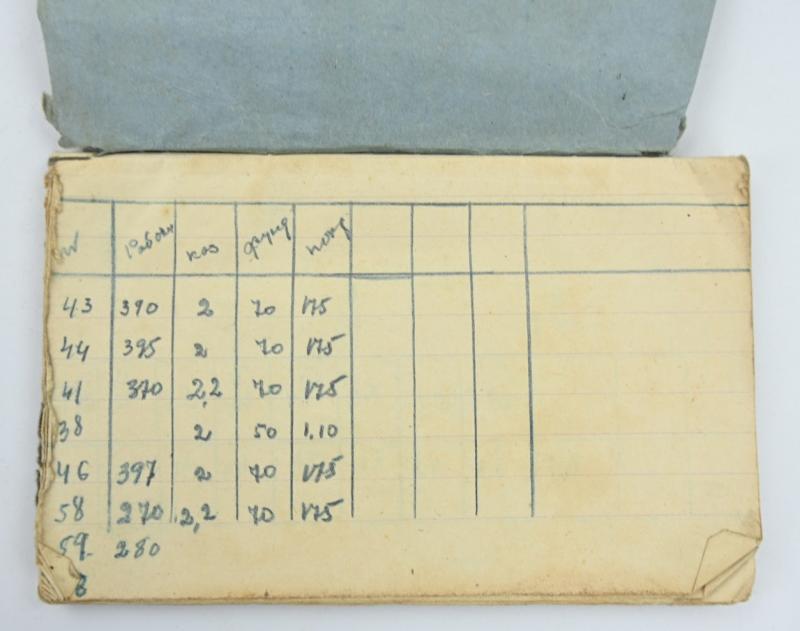 № Рабоч каз фунд похд
43 390 2 70 175
44 395 2 70 175
41 370 2,2 70 175
38 2 50 1.10
46 397 2 70 175
58 270 2,2 70 175
59. 280